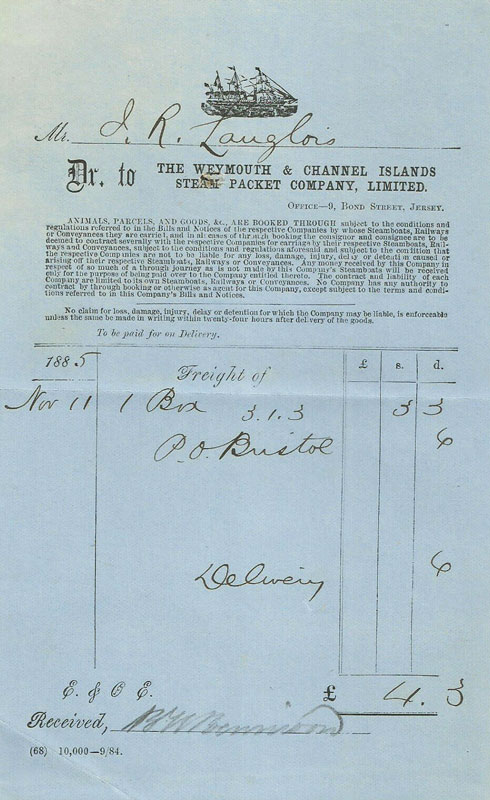 Mr. J. R. Langlois
Dr. to THE WEYMOUTH & CHANNEL ISLANDS
STEAM PACKET COMPANY, LIMITED.
OFFICE—9, BOND STREET, JERSEY.
ANIMALS, PARCELS, AND GOODS, &c., ARE BOOKED THROUGH subject to the conditions and
regulations referred to in the Bills and Notices of the respective Companies by whose Steamboats, Railways
or Conveyances they are carried, and in all cases of through booking the consignor and consignee are to be
deemed to contract severally with the respective Companies for carriage by their respective Steamboats, Rail-
ways and Conveyances, subject to the conditions and regulations aforesaid and subject to the condition that
the respective Companies are not to be liable for any loss, damage, injury, delay or detention caused or
arising off their respective Steamboats, Railways or Conveyances. Any money received by this Company in
respect of so much of a through journey as is not made by this Company's Steamboats will be received
only for the purpose of being paid over to the Company entitled thereto. The contract and liability of each
Company are limited to its own Steamboats, Railways or Conveyances. No Company has any authority to
contract by through booking or otherwise as agent for this Company, except subject to the terms and condi-
tions referred to in this Company's Bills and Notices.
No claim for loss, damage, injury, delay or detention for which the Company may be liable, is enforceable
unless the same be made in writing within twenty-four hours after delivery of the goods.
To be paid for on Delivery.
1885 Freight of £ s. d.
Nov 11 1 Box 3.1.3 3 3
P.O. Bristol 6
Delivery 6
E. & O E. £ 4. 3
Received,
(68) 10,000—9/84.